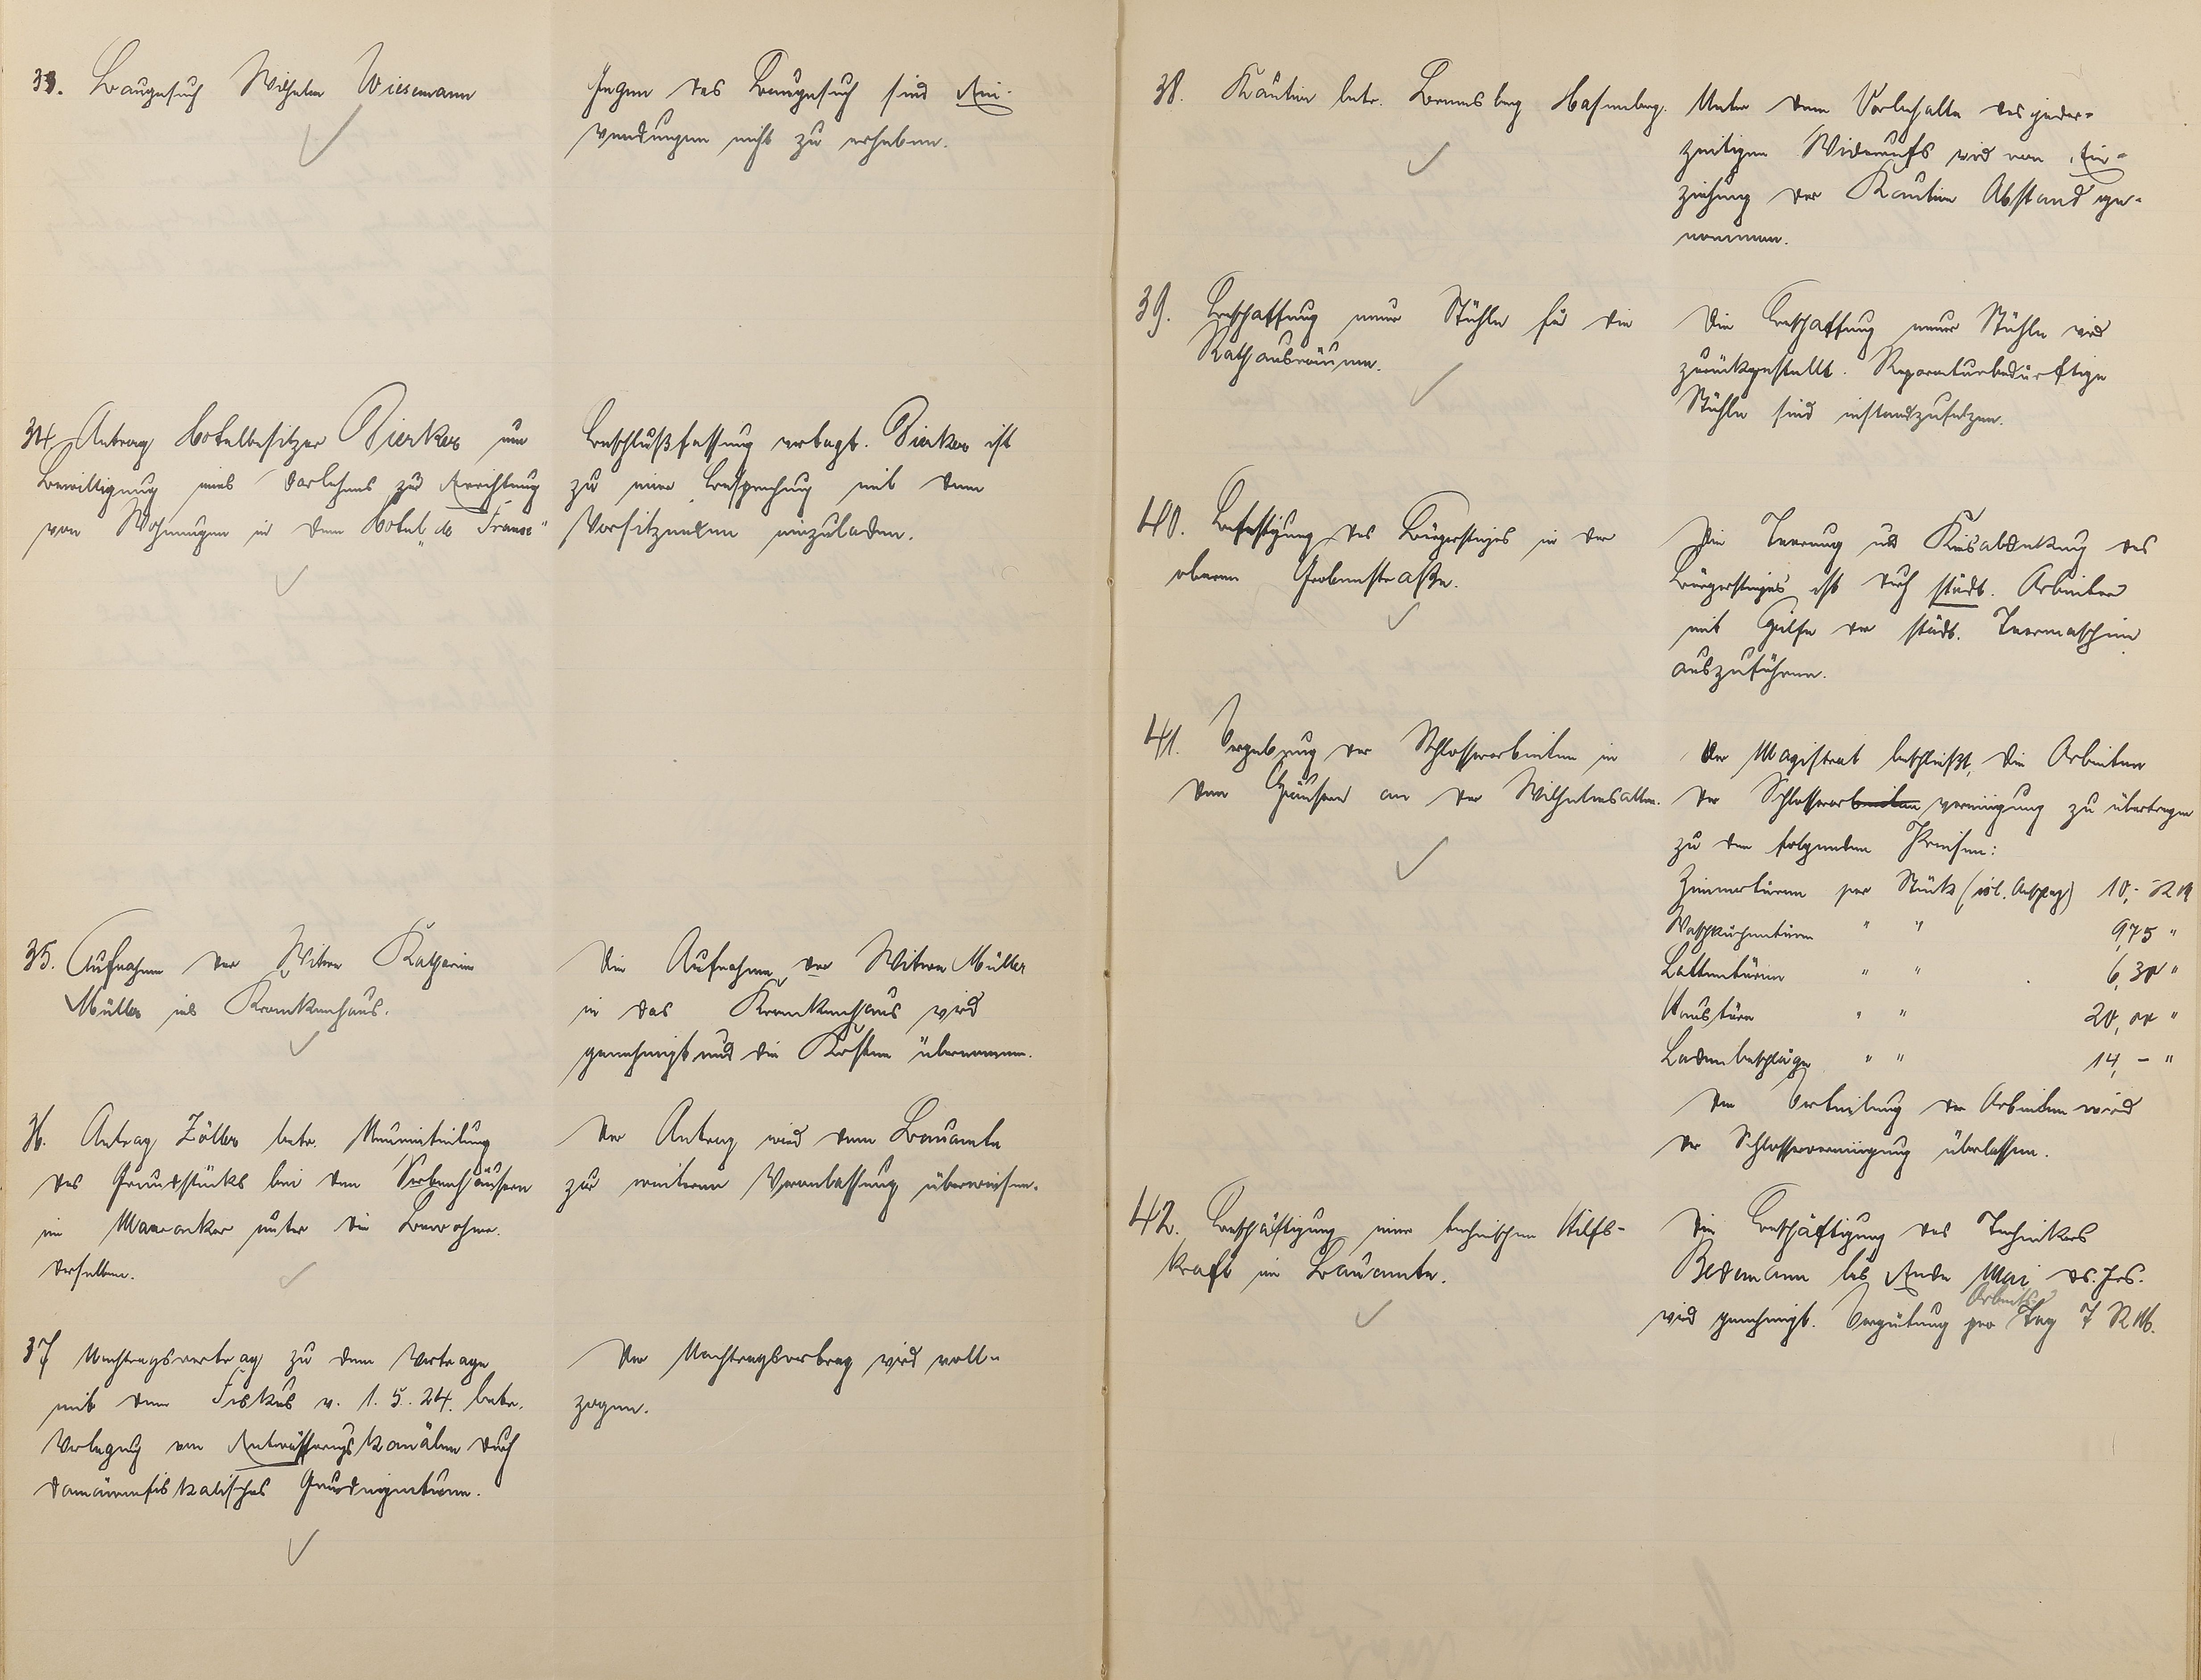 33. Baugesuch Wilhelm Wiesemann
Gegen das Baugesuch sind Ein-
wendungen nicht zu erheben.
34. Antrag Hotelbesitzer Pierkes um
Bewilligung eines Darlehens zur Errichtung
von Wohnungen in dem Hotel „de France"
Beschlußfassung vertagt. Pierkes ist
zu einer Besprechung mit dem
Vorsitzenden einzuladen.
35. Aufnahme der Witwe Katharina
Müller ins Krankenhaus.
Die Aufnahme der Witwe Müller
in das Krankenhaus wird
genehmigt und die Kosten übernommen.
36. Antrag Zöller betr. Neueinteilung
des Grundstücks bei den Siebenhäusern
im Maaracker unter die Bewohner
derselben.
Der Antrag wird dem Bauamte
zur weiteren Veranlassung überwiesen.
37 Nachtragsvertrag zu dem Vertrage
mit dem Fiskus v. 1.5.24. betr.
Verlegung von Entwässerungskanälen durch
domänenfiskalisches Grundeigentum.
Der Nachtragsvertrag wird voll-
zogen.
38. Kaution betr. Hasenberg.
Unter dem Vorbehalte des jeder-
zeitigen Widerrufs wird von Ein-
ziehung der Kaution Abstand ge-
nommen.
39. Beschaffung neuer Stühle für die
Rathausräume.
Die Beschaffung neuer Stühle wird
zurückgestellt. Reparaturbedürftige
Stühle sind instandzusetzen.
40. Befestigung des Bürgersteiges in der
oberen Grabenstraße.
Die Teerung und Kiesabdeckung des
Bürgersteiges ist durch städt. Arbeiter
mit Hülfe der städt. Teermaschine
auszuführen.
41. Vergebung der Schlosserarbeiten in
den Häusern an der Wilhelmsallee.
Der Magistrat beschließt, die Arbeiten
der Schlosserarbeiten vereinigung zu übertragen
zu den folgenden Preisen:
Zimmertüren per Stück (inl. Anschlag) 10,- RM
Waschküchentüren " " 9,75 "
Lattentüren " " 6,30 "
Haustüre " " 20,00 "
Ladenbeschläge " " 14,- "
Die Verteilung der Arbeiten wird
der Schlosservereinigung überlassen.
42. Beschäftigung einer technischen Hilfs-
kraft im Bauamte.
Die Beschäftigung des Technikers
Bedemann bis Ende Mai ds. Js.
Arbeits-
wird genehmigt. Vergütung pro Tag 7 RM.